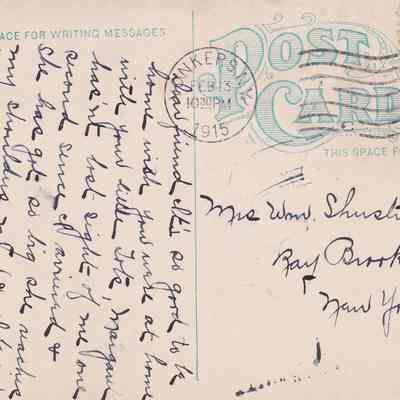 ACE FOR WRITING MESSAGES
POST
CARD
THIS SPACE F
NKERS, N.Y.
FEB 13
10 30 PM
1915
Dear friend It's so good to be
home with you were at home
with your little Tot, Margare
has'nt lost sight of me one
second since I arrived &
She has got so big she reaches
my shoulders
Mrs Wm. Shust
Ray Brook
New Yo